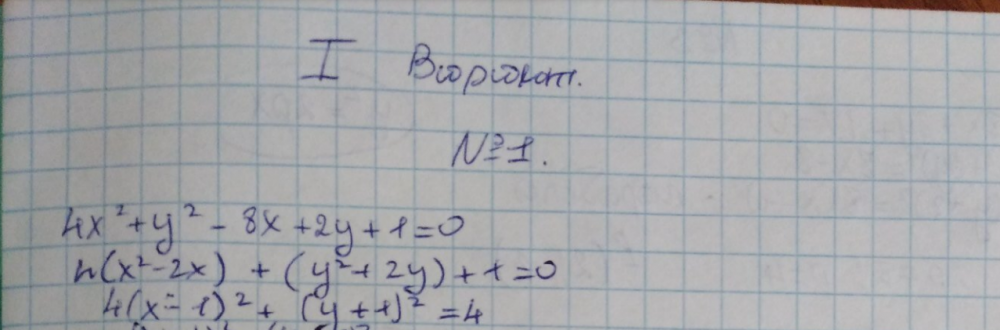 I Вариант.
№1.
4x² + y² - 8x + 2y + 1 = 0
4(x² - 2x) + (y² + 2y) + 1 = 0
4(x - 1)² + (y + 1)² = 4